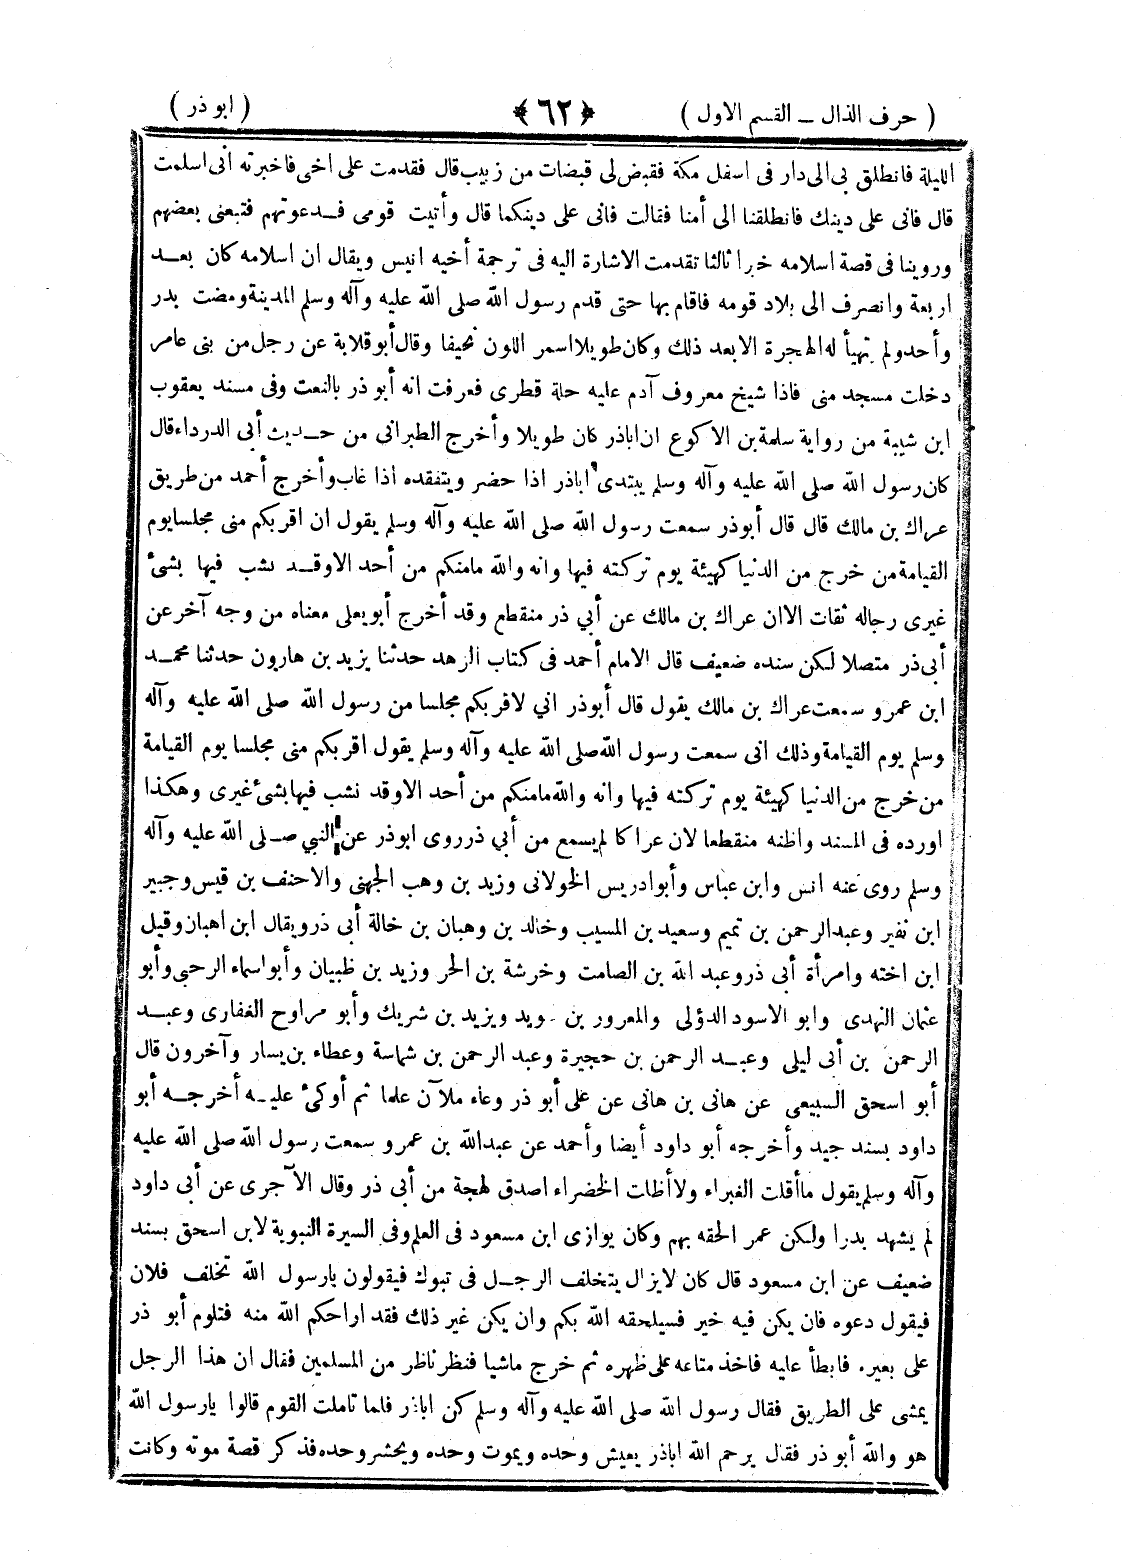 ( حرف الذال ــ القسم الاول ) ﴿ ٦٢ ﴾ ( ابو ذر )
الليلة فانطلق بى الى دار فى اسفل مكة فقبض لى قبضات من زبيب قال فقدمت على اخى فاخبرته أنى اسلمت
قال فانى على دينك فانطلقنا الى أمنا فقالت فانى على دينكما قال وأتيت قومى فــدعوتهم فتبعنى بعضهم
وروينا فى قصة اسلامه خبرا ثالثا تقدمت الاشارة اليه فى ترجمة أخيه انيس ويقال ان اسلامه كان بعــد
اربعة وانصرف الى بلاد قومه فاقام بها حتى قدم رسول الله صلى الله عليه وآله وسلم المدينة ومضت بدر
وأحد ولم يتهيأ له الهجرة الا بعد ذلك وكان طويلا اسمر اللون نحيفا وقال أبو قلابة عن رجل من بنى عامر
دخلت مسجد منى فاذا شيخ معروف آدم عليه حلة قطرى فعرفت انه أبو ذر بالنعت وفى مسند يعقوب
ابن شيبة من رواية سلمة بن الاكوع ان اباذر كان طويلا وأخرج الطبرانى من حــديث أبى الدرداء قال
كان رسول الله صلى الله عليه وآله وسلم يبتدئ اباذر اذا حضر ويتفقده اذا غاب وأخرج أحمد من طريق
عراك بن مالك قال قال أبوذر سمعت رسول الله صلى الله عليه وآله وسلم يقول ان اقربكم منى مجلسا يوم
القيامة من خرج من الدنيا كهيئة يوم تركته فيها وانه والله مامنكم من أحد الاوقــد نشب فيها بشئ
غيرى رجاله ثقات الا ان عراك بن مالك عن أبي ذر منقطع وقد أخرج أبو يعلى معناه من وجه آخر عن
أبى ذر متصلا لكن سنده ضعيف قال الامام أحمد فى كتاب الزهد حدثنا يزيد بن هارون حدثنا محمــد
ابن عمرو سمعت عراك بن مالك يقول قال أبوذر اني لاقربكم مجلسا من رسول الله صلى الله عليه وآله
وسلم يوم القيامة وذلك انى سمعت رسول الله صلى الله عليه وآله وسلم يقول اقربكم منى مجلسا يوم القيامة
من خرج من الدنيا كهيئة يوم تركته فيها وانه والله مامنكم من أحد الاوقد نشب فيها بشئ غيرى وهكذا
اورده فى المسند واظنه منقطعا لان عراكا لم يسمع من أبي ذر روى ابوذر عن النبي صــلى الله عليه وآله
وسلم روى عنه انس وابن عباس وأبوادريس الخولانى وزيد بن وهب الجهنى والاحنف بن قيس وجبير
ابن نفير وعبدالرحمن بن تميم وسعيد بن المسيب وخالد بن وهبان بن خالة أبى ذر ويقال ابن اهبان وقيل
ابن اخته وامرأة أبى ذر وعبد الله بن الصامت وخرشة بن الحر وزيد بن ظبيان وأبو اسماء الرحبى وأبو
عثمان النهدى وابو الاسود الدؤلى والمعرور بن سويد ويزيد بن شريك وأبو مراوح الغفارى وعبــد
الرحمن بن أبى ليلى وعبــد الرحمن بن حجيرة وعبد الرحمن بن شماسة وعطاء بن يسار وآخرون قال
أبو اسحق السبيعى عن هانى بن هانى عن على أبو ذر وعاء ملآن علما ثم أوكئ عليــه أخرجــه أبو
داود بسند جيد وأخرجه أبو داود أيضا وأحمد عن عبدالله بن عمرو سمعت رسول الله صلى الله عليه
وآله وسلم يقول ماأقلت الغبراء ولا أظلت الخضراء اصدق لهجة من أبى ذر وقال الآجرى عن أبى داود
لم يشهد بدرا ولكن عمر الحقه بهم وكان يوازى ابن مسعود فى العلم وفى السيرة النبوية لابن اسحق بسند
ضعيف عن ابن مسعود قال كان لايزال يتخلف الرجــل فى تبوك فيقولون يارسول الله تخلف فلان
فيقول دعوه فان يكن فيه خير فسيلحقه الله بكم وان يكن غير ذلك فقد اراحكم الله منه فتلوم أبو ذر
على بعيره فابطأ عليه فاخذ متاعه على ظهره ثم خرج ماشيا فنظر ناظر من المسلمين فقال ان هذا الرجل
يمشى على الطريق فقال رسول الله صلى الله عليه وآله وسلم كن اباذر فلما تاملت القوم قالوا يارسول الله
هو والله أبو ذر فقال يرحم الله اباذر يعيش وحده ويموت وحده ويحشر وحده فذكر قصة موته وكانت